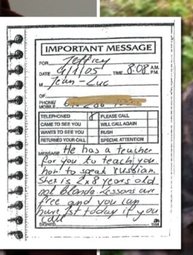 IMPORTANT MESSAGE
FOR Jeffrey
DATE 6/1/05 TIME 8:08 A.M. P.M.
M Jean-Luc
OF
PHONE/
MOBILE
TELEPHONED PLEASE CALL
CAME TO SEE YOU WILL CALL AGAIN
WANTS TO SEE YOU RUSH
RETURNED YOUR CALL SPECIAL ATTENTION
MESSAGE He has a teacher
for you to teach you
how to speak russian.
She is 2x8 years old
not blonde. Lessons are
free and you can
have 1st today if you
call
SIGNED